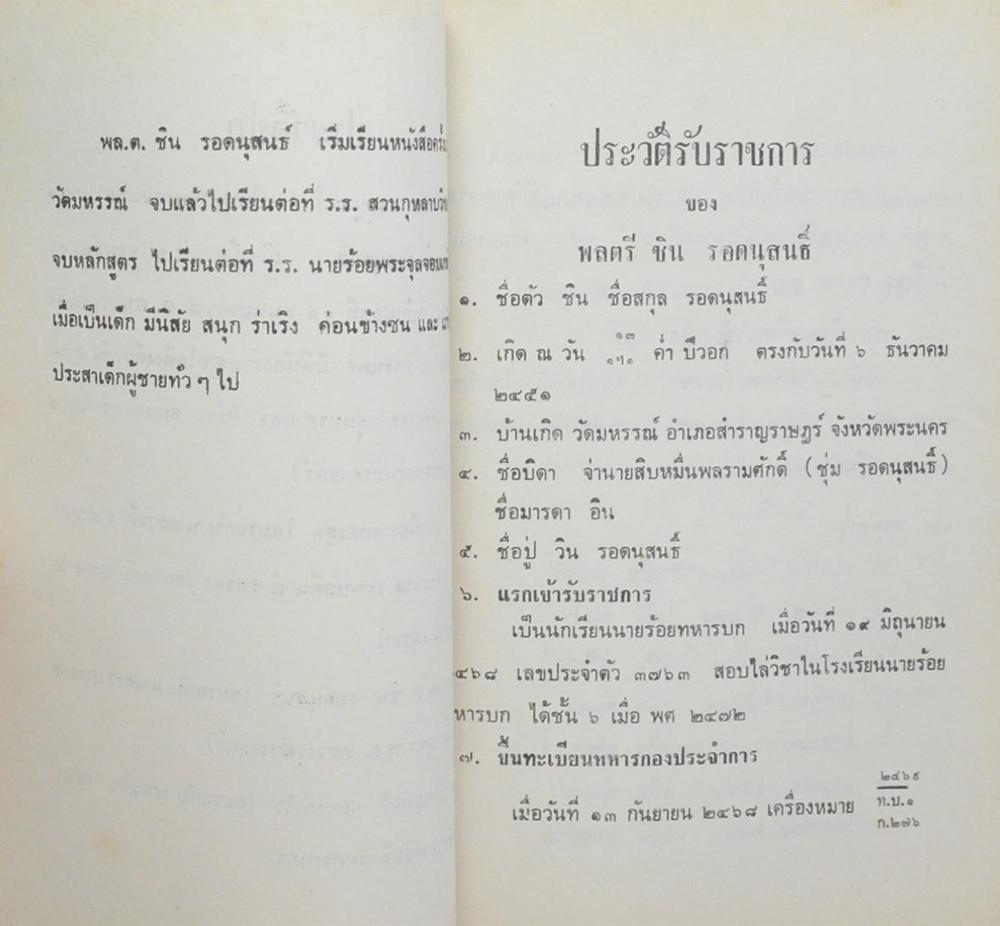 พล.ต. ชิน รอดนุสนธ์ เริ่มเรียนหนังสือครั้งแ
วัดมหรรณ์ จบแล้วไปเรียนต่อที่ ร.ร. สวนกุหลาบวิท
จบหลักสูตร ไปเรียนต่อที่ ร.ร. นายร้อยพระจุลจอมเกล
เมื่อเป็นเด็ก มีนิสัย สนุก ร่าเริง ค่อนข้างซน และ
ประสาเด็กผู้ชายทั่ว ๆ ไป
ประวัติรับราชการ
ของ
พลตรี ชิน รอดนุสนธิ์
๑. ชื่อตัว ชิน ชื่อสกุล รอดนุสนธิ์
๒. เกิด ณ วัน ๑๓ ๑ฯ๑ ค่ำ ปีวอก ตรงกับวันที่ ๖ ธันวาคม
๒๔๕๑
๓. บ้านเกิด วัดมหรรณ์ อำเภอสำราญราษฎร์ จังหวัดพระนคร
๔. ชื่อบิดา จ่านายสิบหมื่นพลรามศักดิ์ (ชุ่ม รอดนุสนธิ์)
ชื่อมารดา อิน
๕. ชื่อปู่ วิน รอดนุสนธิ์
๖. แรกเข้ารับราชการ
เป็นนักเรียนนายร้อยทหารบก เมื่อวันที่ ๑๙ มิถุนายน
๔๖๘ เลขประจำตัว ๓๗๖๓ สอบไล่วิชาในโรงเรียนนายร้อย
หารบก ได้ชั้น ๖ เมื่อ พศ ๒๔๗๒
๗. ขึ้นทะเบียนทหารกองประจำการ
เมื่อวันที่ ๑๓ กันยายน ๒๔๖๘ เครื่องหมาย ๒๔๖๙
ท.บ.๑
ก.๒๗๖